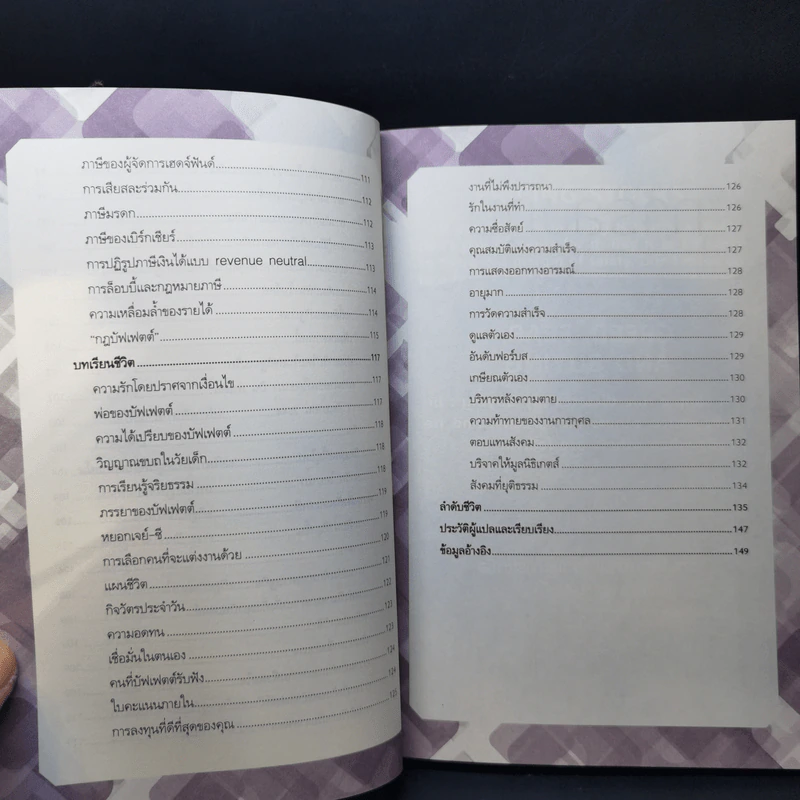 ภาษีของผู้จัดการเฮดจ์ฟันด์ 111
การเสียสละร่วมกัน 112
ภาษีมรดก 112
ภาษีของเบิร์กเชียร์ 113
การปฏิรูปภาษีเงินได้แบบ revenue neutral 113
การล็อบบี้และกฎหมายภาษี 114
ความเหลื่อมล้ำของรายได้ 114
"กฎบัฟเฟตต์" 115
บทเรียนชีวิต 117
ความรักโดยปราศจากเงื่อนไข 117
พ่อของบัฟเฟตต์ 117
ความได้เปรียบของบัฟเฟตต์ 118
วิญญาณขบถในวัยเด็ก 118
การเรียนรู้จริยธรรม 118
ภรรยาของบัฟเฟตต์ 119
หยอกเจย์-ซี 119
การเลือกคนที่จะแต่งงานด้วย 120
แผนชีวิต 121
กิจวัตรประจำวัน 122
ความอดทน 123
เชื่อมั่นในตนเอง 123
คนที่บัฟเฟตต์รับฟัง 124
ใบคะแนนภายใน 124
การลงทุนที่ดีที่สุดของคุณ 125
งานที่ไม่พึงปรารถนา 126
รักในงานที่ทำ 126
ความซื่อสัตย์ 127
คุณสมบัติแห่งความสำเร็จ 127
การแสดงออกทางอารมณ์ 128
อายุมาก 128
การวัดความสำเร็จ 128
ดูแลตัวเอง 129
อันดับฟอร์บส 129
เกษียณตัวเอง 130
บริหารหลังความตาย 130
ความท้าทายของงานการกุศล 131
ตอบแทนสังคม 132
บริจาคให้มูลนิธิเกตส์ 132
สังคมที่ยุติธรรม 134
ลำดับชีวิต 135
ประวัติผู้แปลและเรียบเรียง 147
ข้อมูลอ้างอิง 149